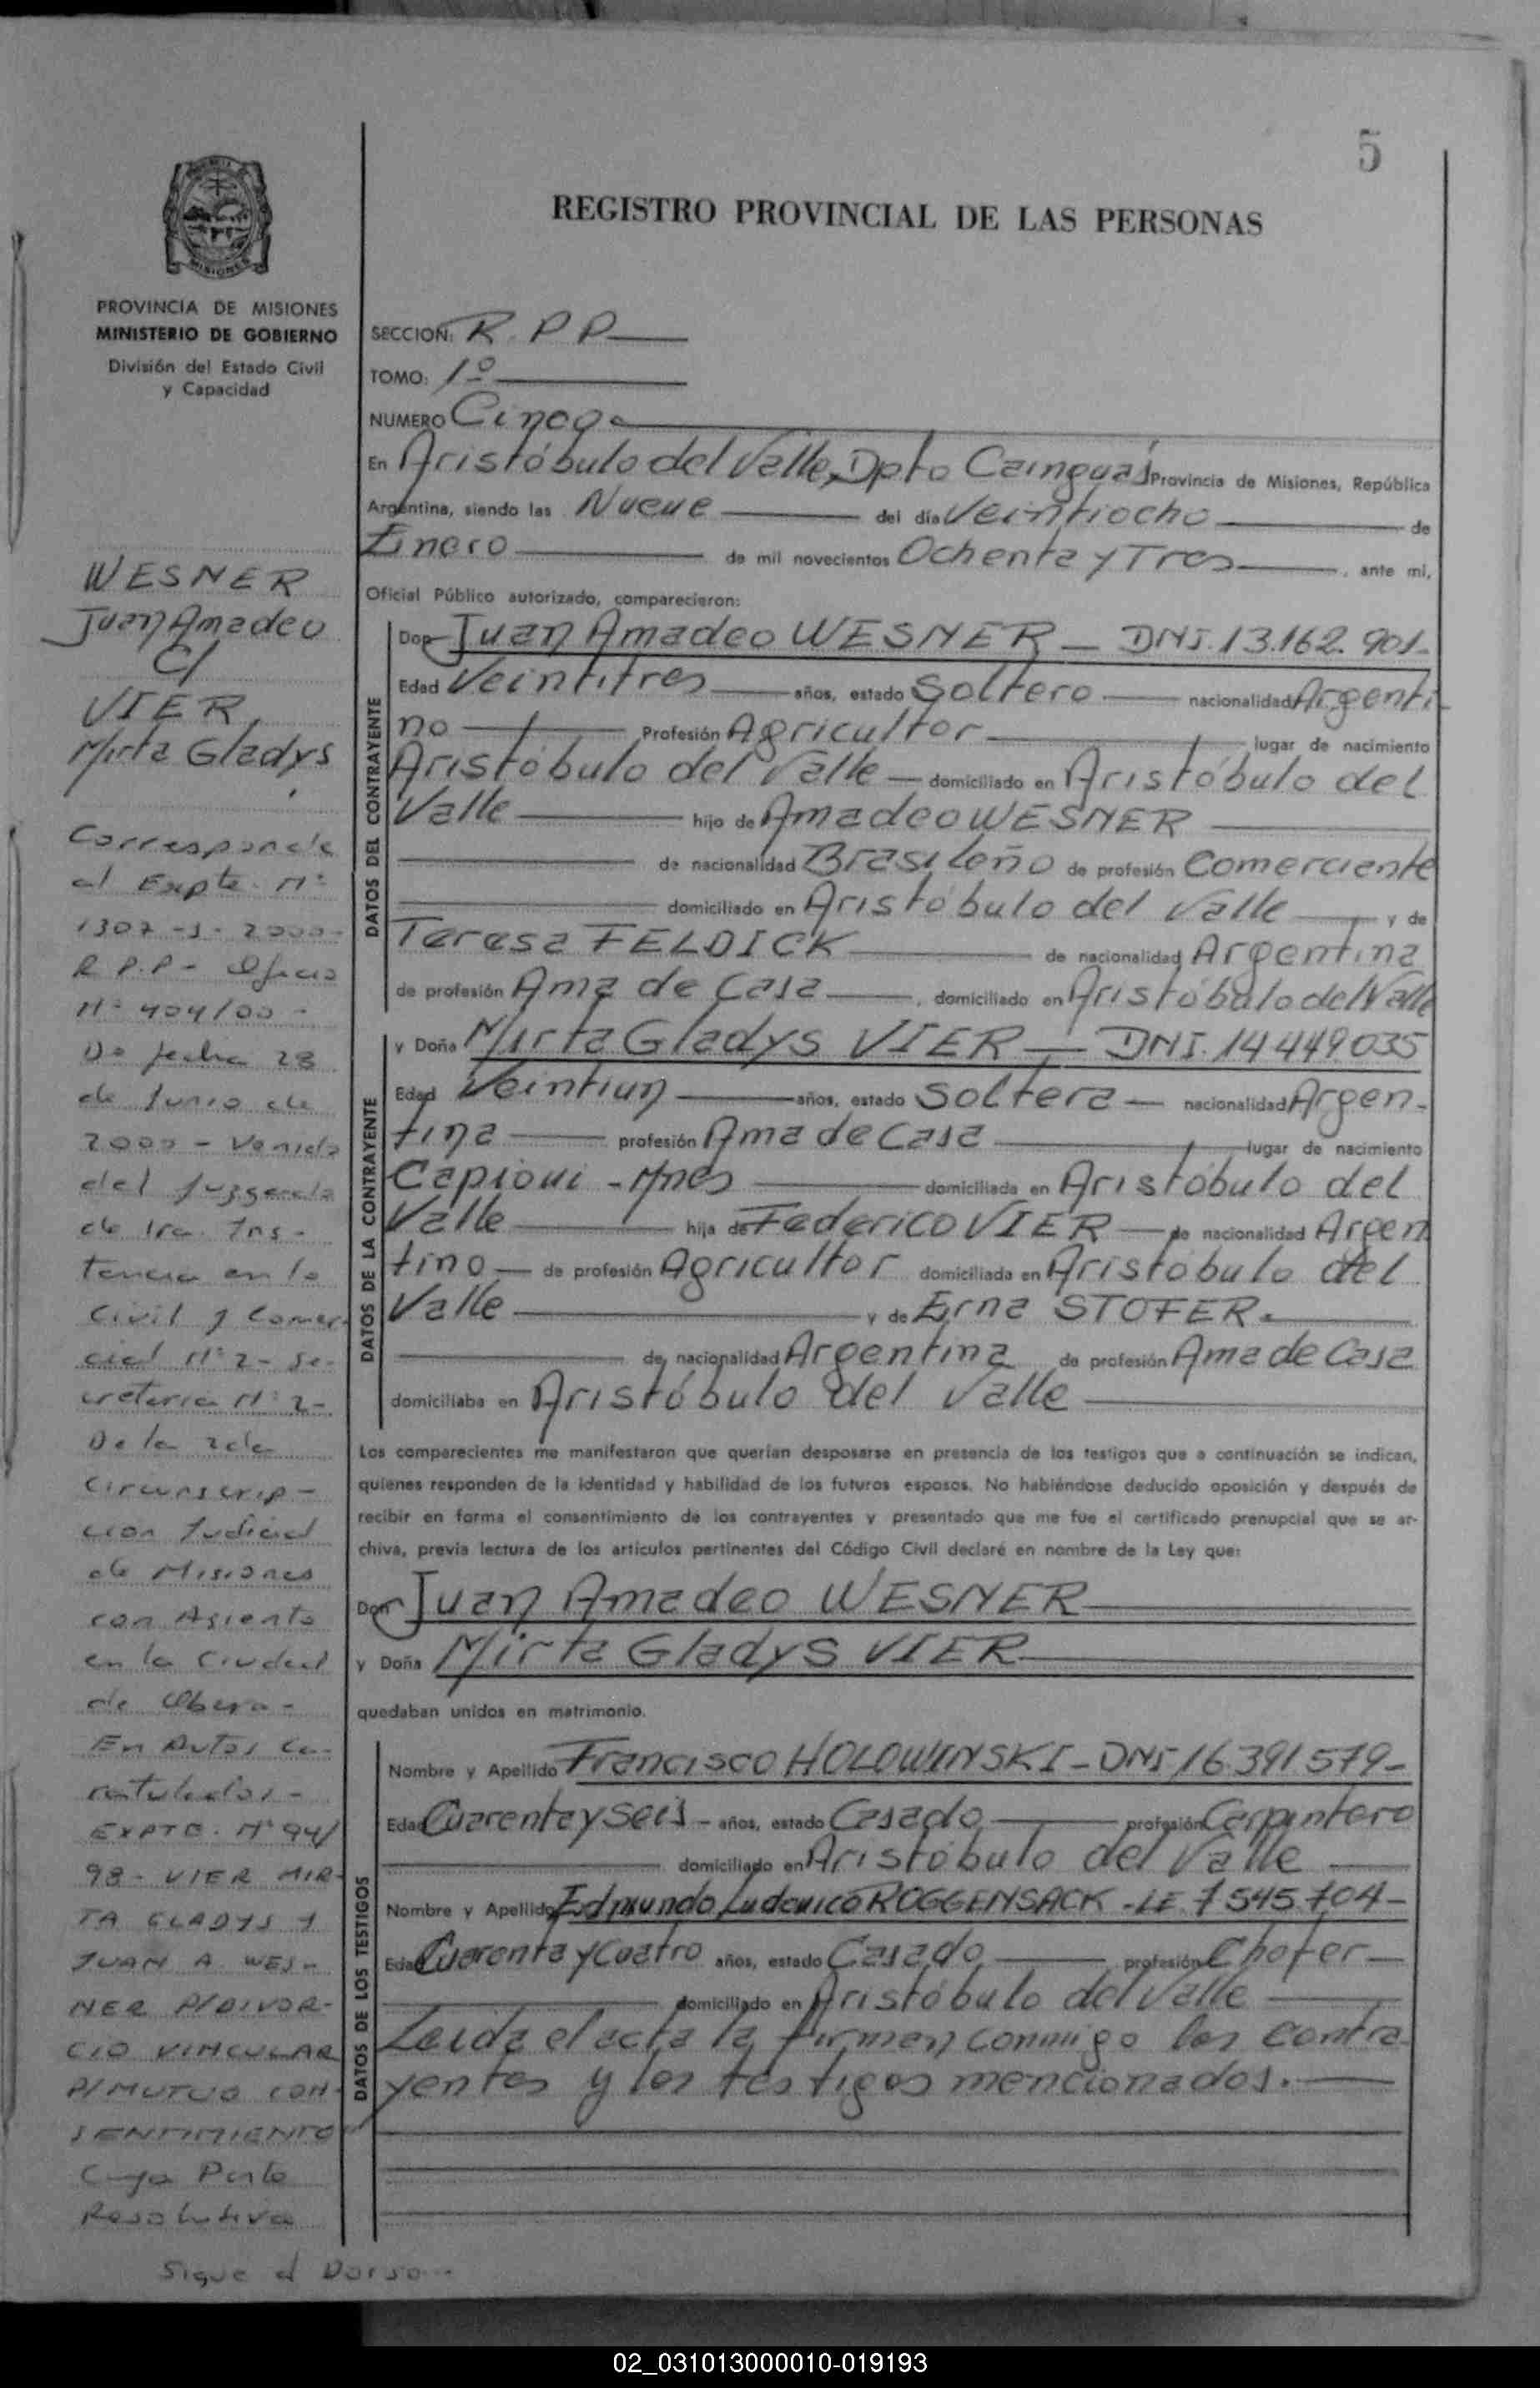 5
REGISTRO PROVINCIAL DE LAS PERSONAS
MISIONES
PROVINCIA DE MISIONES
MINISTERIO DE GOBIERNO
División del Estado Civil
y Capacidad
WESNER
Juan Amadeo
C/
VIER
Mirta Gladys
Corresponde
al Expte. Nº
1307 -J- 2000-
R P.P - Oficio
Nº 404/00 -
De fecha 28
de Junio de
2000 - Venido
del Juzgado
de 1ra. Ins-
tancia en lo
Civil y Comer
cial Nº 2 - Se-
cretaria Nº 2-
De la 2da
Circunscrip-
cion Judicial
de Misiones
con Asiento
en la Ciudad
de Obera -
En Autos Ca-
ratulados -
EXPTE. Nº 94/
98 - VIER MIR-
TA GLADYS Y
JUAN A. WES-
NER P/DIVOR-
CIO VINCULAR
P/MUTUO CON-
SENTIMIENTO
Cuya Parte
Resolutiva
Sigue al Dorso--
SECCION: R. P P
TOMO: 1º
NUMERO Cinco
En Aristóbulo del Valle, Dpto Cainguás Provincia de Misiones, República
Argentina, siendo las Nueve del día Veintiocho de
Enero de mil novecientos Ochenta y Tres, ante mi,
Oficial Público autorizado, comparecieron:
DATOS DEL CONTRAYENTE
Don Juan Amadeo WESNER - DNI. 13.162.901-
Edad Veintitres años, estado Soltero nacionalidad Argenti-
no Profesión Agricultor lugar de nacimiento
Aristóbulo del Valle domiciliado en Aristóbulo del
Valle hijo de Amadeo WESNER
de nacionalidad Brasileño de profesión Comerciante
domiciliado en Aristóbulo del Valle y de
Teresa FELDICK de nacionalidad Argentina
de profesión Ama de Casa, domiciliado en Aristóbulo del Valle
DATOS DE LA CONTRAYENTE
y Doña Mirta Gladys VIER - DNI. 14.449.035
Edad Veintiun años, estado Soltera nacionalidad Argen-
tina profesión Ama de Casa lugar de nacimiento
Capioui - Mnes domiciliada en Aristóbulo del
Valle hija de Federico VIER de nacionalidad Argen
tino de profesión Agricultor domiciliada en Aristóbulo del
Valle y de Erna STOFER.
de nacionalidad Argentina de profesión Ama de Casa
domiciliaba en Aristóbulo del Valle
Los comparecientes me manifestaron que querían desposarse en presencia de los testigos que a continuación se indican,
quienes responden de la identidad y habilidad de los futuros esposos. No habiéndose deducido oposición y después de
recibir en forma el consentimiento de los contrayentes y presentado que me fue el certificado prenupcial que se ar-
chiva, previa lectura de los artículos pertinentes del Código Civil declaré en nombre de la Ley que:
Don Juan Amadeo WESNER
y Doña Mirta Gladys VIER
quedaban unidos en matrimonio.
DATOS DE LOS TESTIGOS
Nombre y Apellido Francisco HOLOWINSKI - DNI 16.391.579-
Edad Cuarenta y Seis - años, estado Casado profesión Carpintero
domiciliado en Aristóbulo del Valle
Nombre y Apellido Edmundo Ludovico ROGGENSACK - LE. 7.545.704-
Edad Cuarenta y Cuatro años, estado Casado profesión Chofer
domiciliado en Aristóbulo del Valle
Leida el acta la firman conmigo los contra-
yentes y los testigos mencionados.
02_031013000010-019193